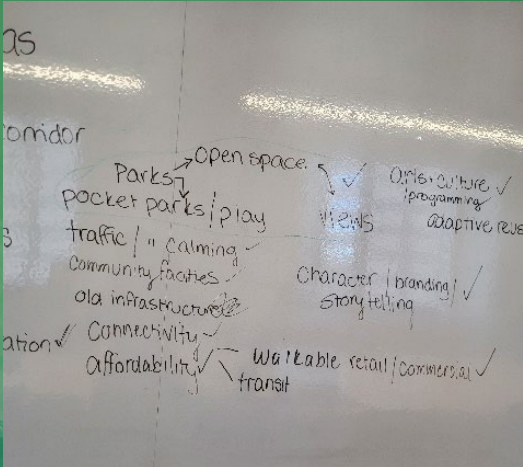 as
orridor
Open space
Parks
pocket parks/play
s
traffic/" calming
Community facilties
old infrastructure
ation ✓
Connectivity
affordability
views
arts+culture ✓
/programming
adaptive reus
Character/branding/ ✓
storytelling
walkable retail/commercial ✓
transit